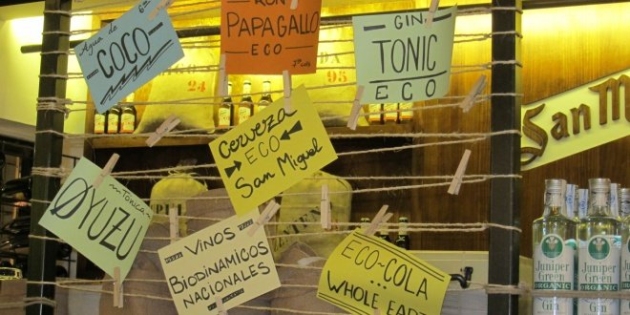 RON
PAPAGALLO
ECO
Agua de
COCO
GIN
TONIC
ECO
Cerveza
ECO
San Miguel
TONICA
ØYUZU
VINOS
BIODINAMICOS
NACIONALES
ECO-COLA
WHOLE EARTH
San M
95
Juniper
Green
ORGANIC
Juniper
Green
ORGANIC